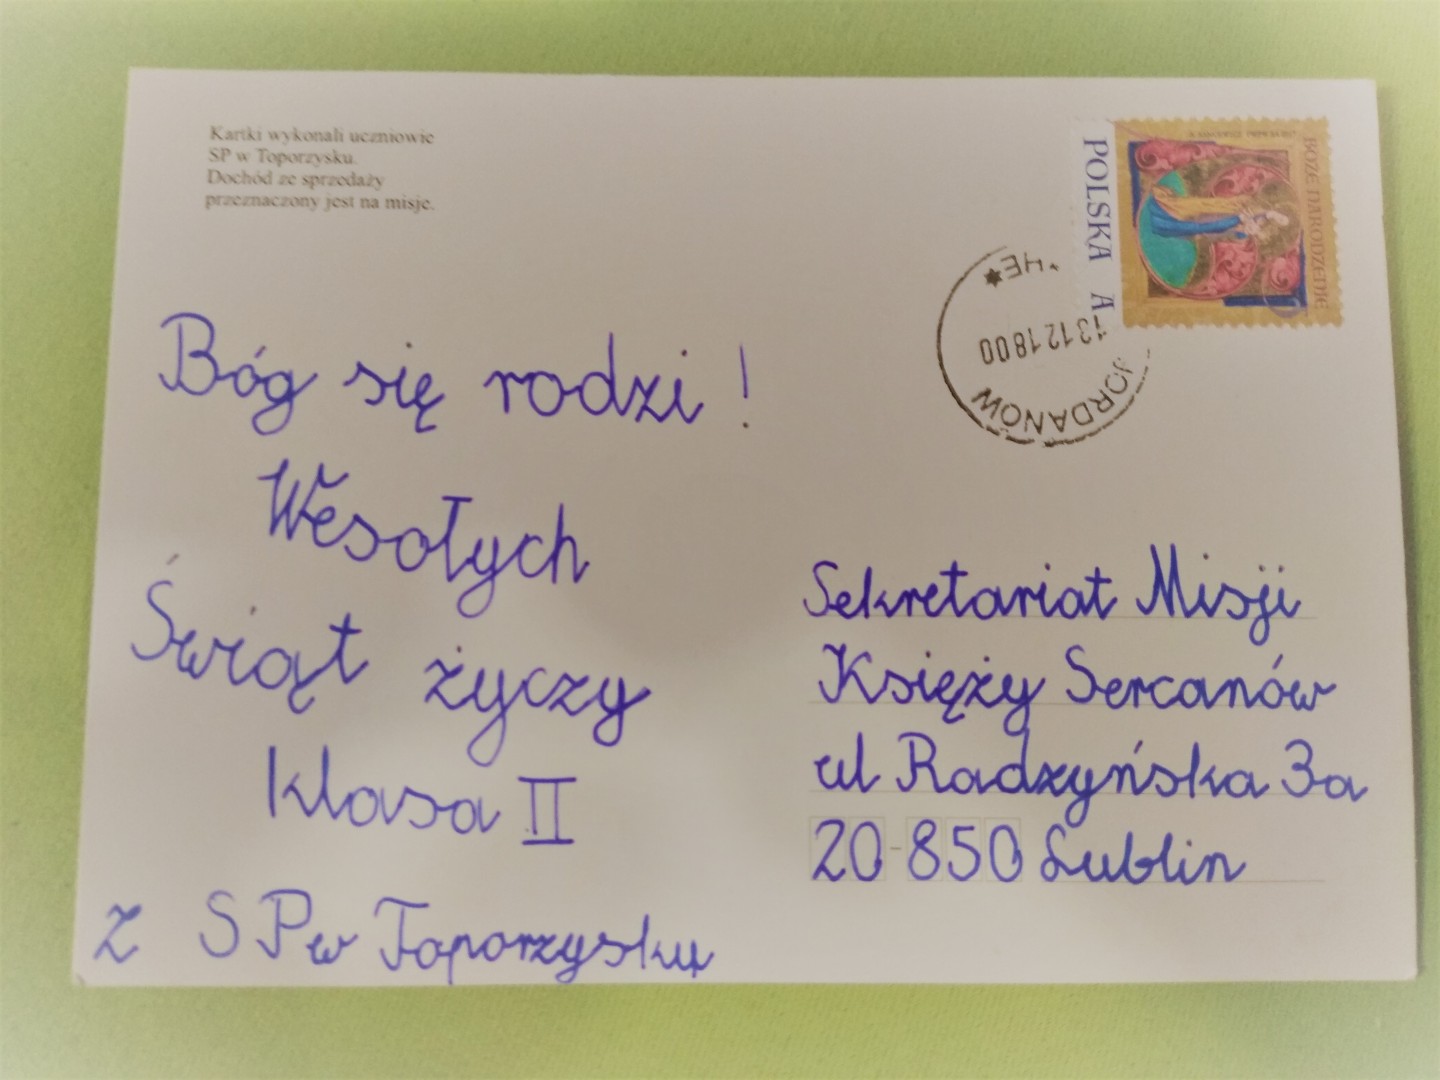 Kartki wykonali uczniowie
SP w Toporzysku.
Dochód ze sprzedaży
przeznaczony jest na misje.
BOŻE NARODZENIE
POLSKA A
*ЧЕ*
13121800
JORDANÓW
Bóg się rodzi !
Wesołych
Świąt życzy
klasa II
z SP w Toporzysku
Sekretariat Misji
Księży Sercanów
ul Radzyńska 3a
20-850 Lublin